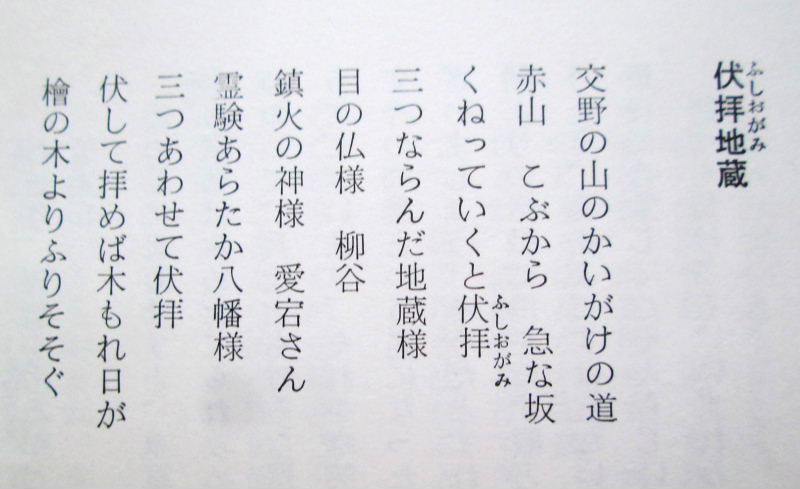 伏拝地蔵
ふしおがみ
交野の山のかいがけの道
赤山　こぶから　急な坂
くねっていくと伏拝
ふしおがみ
三つならんだ地蔵様
目の仏様　柳谷
鎮火の神様　愛宕さん
霊験あらたか八幡様
三つあわせて伏拝
伏して拝めば木もれ日が
檜の木よりふりそそぐ